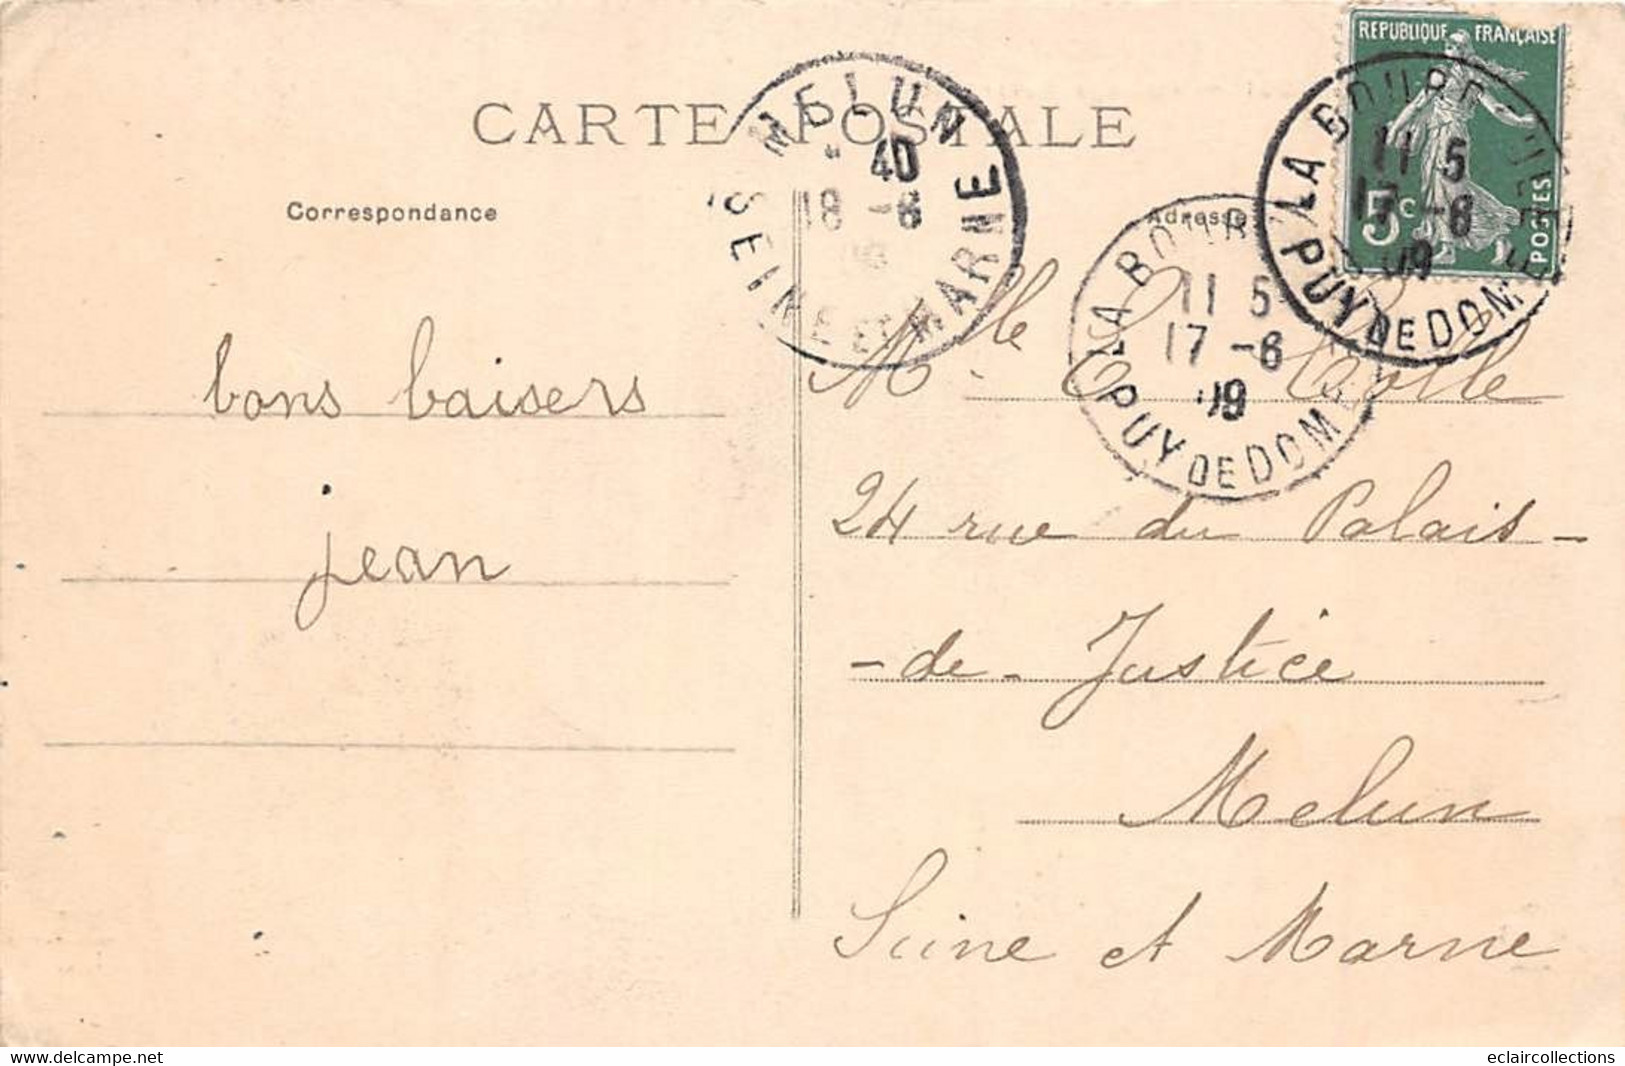 CARTE POSTALE
Correspondance
Adresse
REPUBLIQUE FRANÇAISE
5c
POSTES
MELUN
40
18 -6
SEINE ET MARNE
LA BOUR
11 5
17 -6
09
PUY DE DOME
LA BOURBOULE
11 5
17 -6
09
PUY DE DOME
bons baisers
jean
Mlle
24 rue du Palais-
-de-Justice
Melun
Seine et Marne
eclaircollections